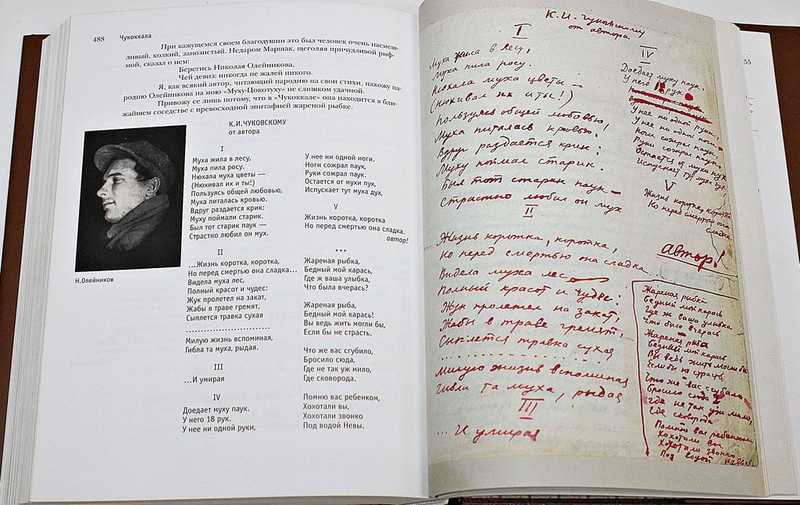 488 Чукоккала
При кажущемся своем благодушии это был человек очень насмеш-
ливый, колкий, занозистый. Недаром Маршак, щеголяя причудливой риф-
мой, сказал о нем:
Берегись Николая Олейникова,
Чей девиз: никогда не жалей никого.
Я, как всякий автор, читающий пародию на свои стихи, нахожу па-
родию Олейникова на мою «Муху-Цокотуху» не слишком удачной.
Привожу ее лишь потому, что в «Чукоккале» она находится в бли-
жайшем соседстве с превосходной эпитафией жареной рыбке.
Н.Олейников
К.И.ЧУКОВСКОМУ
от автора
I
Муха жила в лесу,
Муха пила росу.
Нюхала муха цветы —
(Нюхивал их и ты!)
Пользуясь общей любовью,
Муха питалась кровью.
Вдруг раздается крик:
Муху поймали старик.
Был тот старик паук —
Страстно любил он мух.
II
...Жизнь коротка, коротка,
Но перед смертью она сладка...
Видела муха лес,
Полный красот и чудес:
Жук пролетел на закат,
Жабы в траве гремят,
Сыплется травка сухая
Милую жизнь вспоминая,
Гибла та муха, рыдая.
III
...И умирая
IV
Доедает муху паук.
У него 18 рук.
У нее ни одной руки,
У нее ни одной ноги.
Ноги сожрал паук,
Руки сожрал паук.
Остается от мухи пух,
Испускает тут муха дух.
V
Жизнь коротка, коротка
Но перед смертью она сладка,
автор!
***
Жареная рыбка,
Бедный мой карась,
Где ж ваша улыбка,
Что была вчерась?
Жареная рыба,
Бедный мой карась!
Вы ведь жить могли бы,
Если бы не страсть.
Что же вас сгубило,
Бросило сюда,
Где не так уж мило,
Где сковорода.
Помню вас ребенком,
Хохотали вы,
Хохотали звонко
Под водой Невы.
К. И. Чуковскому
от автора
I
Муха жила в лесу,
Муха пила росу.
Нюхала муха цветы —
(Нюхивал их и ты!)
Пользуясь общей любовью,
Муха питалась кровью.
Вдруг раздается крик:
Муху поймал старик
Был тот старик паук —
Страстно любил он мух
II
Жизнь коротка, коротка,
Но перед смертью она сладка...
Видела муха лес
Полный красот и чудес:
Жук пролетел на закат,
Жабы в траве гремят,
Сыплется травка сухая
Милую жизнь вспоминая
Гибла та муха, рыдая
III
... И умирая
IV
Доедает муху паук.
У него 18 рук.
У нее ни одной руки,
У нее ни одной ноги
Ноги сожрал паук
Руки сожрал паук
Остается от мухи пух
Испускает тут муха дух.
V
Жизнь коротка, коротка
Но перед смертью она
сладка
автор!
Жареная рыбка
Бедный мой карась
Где ж ваша улыбка
Что была вчерась
Жареная рыба
Бедный мой карась
Вы ведь жить могли бы
Если бы не страсть
Что же вас сгубило
Бросило сюда
Где не так уж мило
Где сковорода
Помню вас ребенком
Хохотали вы
Хохотали звонко
Под водой
55